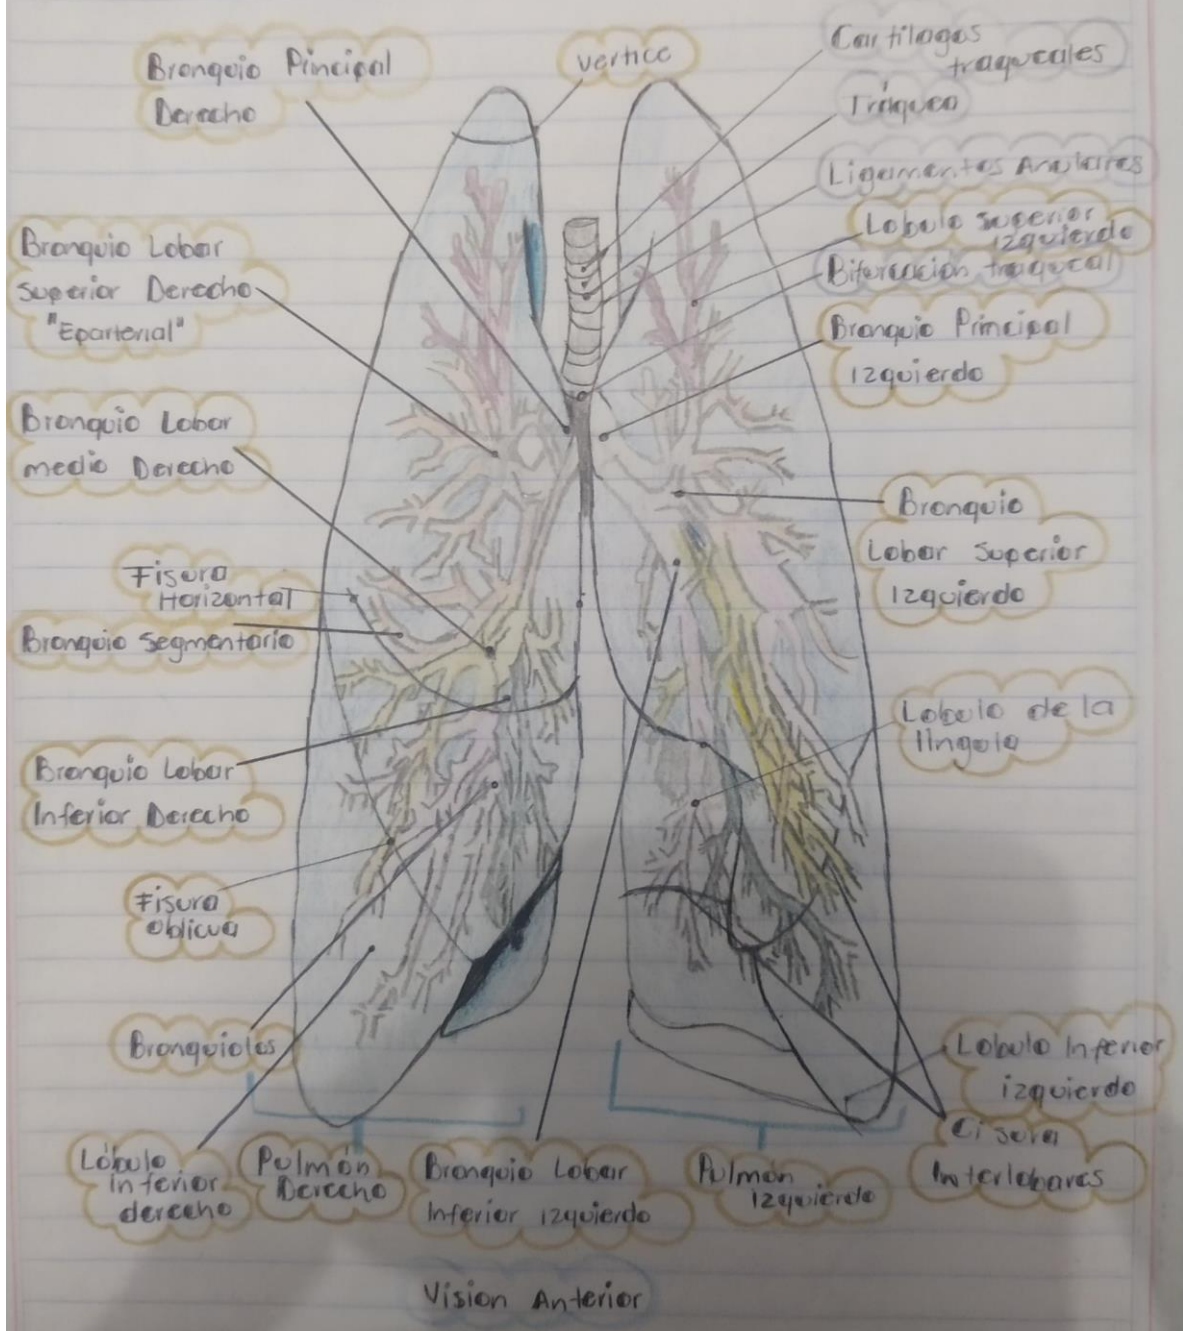 Bronquio Pincipal
Derecho
vertice
Cartilagos
traqueales
Tráquea
Ligamentos Anulares
Lobulo superior
izquierdo
Bifurcación traqueal
Bronquio Principal
izquierdo
Bronquio Lobar
superior Derecho
"Eparterial"
Bronquio Lobar
medio Derecho
Bronquio
Lobar Superior
Izquierdo
Fisura
Horizontal
Bronquio segmentario
Lobulo de la
língula
Bronquio Lobar
Inferior Derecho
Fisura
oblicua
Bronquiolos
Lobulo Inferior
izquierdo
Cisura
Interlobares
Lóbulo
inferior
derecho
Pulmón
Derecho
Bronquio Lobar
Inferior izquierdo
Pulmón
izquierdo
Vision Anterior